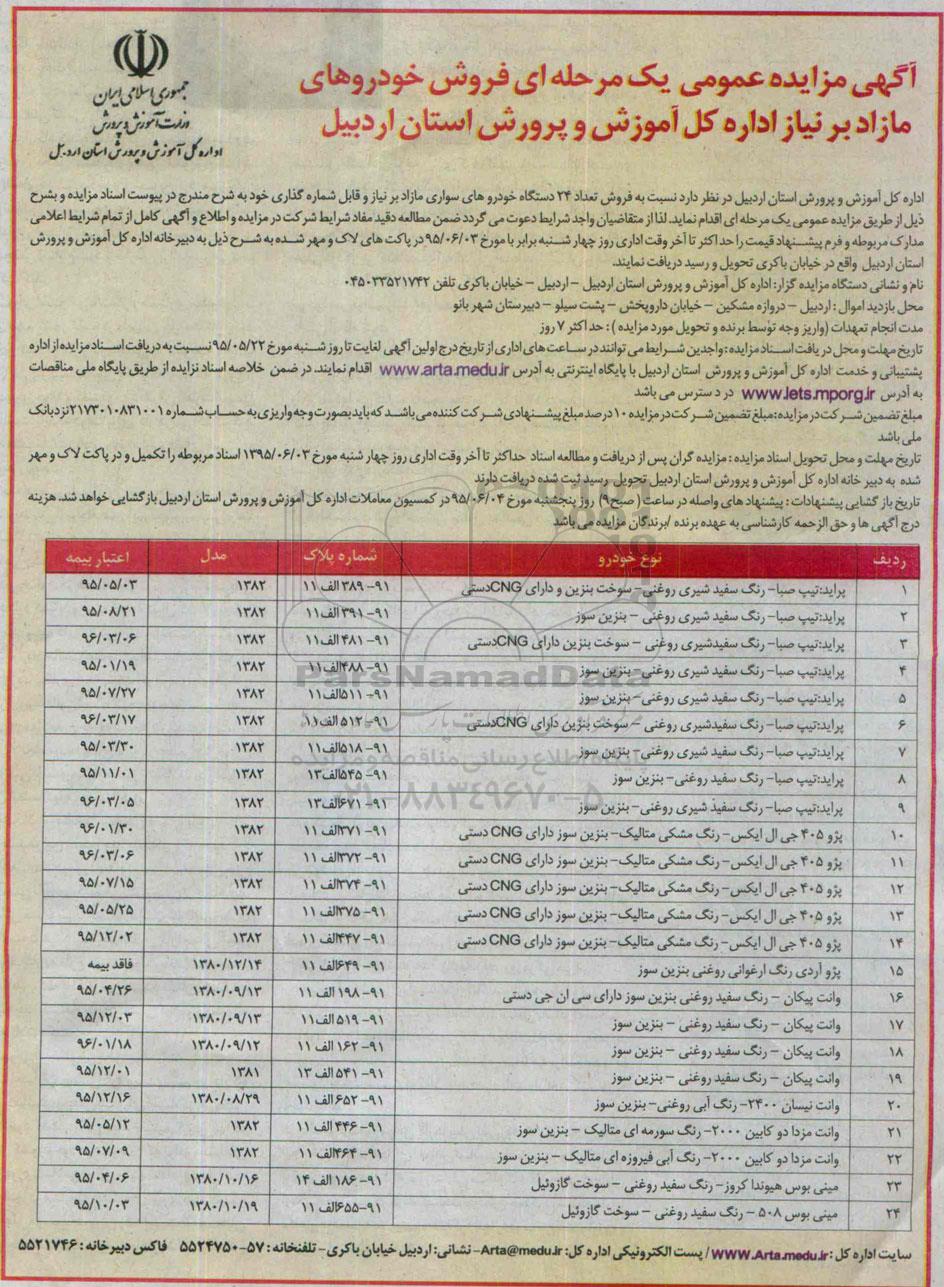 جمهوری اسلامی ایران
وزارت آموزش و پرورش
اداره کل آموزش و پرورش استان اردبیل
آگهی مزایده عمومی یک مرحله ای فروش خودروهای
مازاد بر نیاز اداره کل آموزش و پرورش استان اردبیل
اداره کل آموزش و پرورش استان اردبیل در نظر دارد نسبت به فروش تعداد ۲۴ دستگاه خودرو های سواری مازاد بر نیاز و قابل شماره گذاری خود به شرح مندرج در پیوست اسناد مزایده و بشرح
ذیل از طریق مزایده عمومی یک مرحله ای اقدام نماید. لذا از متقاضیان واجد شرایط دعوت می گردد ضمن مطالعه دقیق مفاد شرایط شرکت در مزایده و اطلاع و آگهی کامل از تمام شرایط اعلامی
مدارک مربوطه و فرم پیشنهاد قیمت را حداکثر تا آخر وقت اداری روز چهار شنبه برابر با مورخ ۹۵/۰۶/۰۳ در پاکت های لاک و مهر شده به شرح ذیل به دبیرخانه اداره کل آموزش و پرورش
استان اردبیل واقع در خیابان باکری تحویل و رسید دریافت نمایند.
نام و نشانی دستگاه مزایده گزار: اداره کل آموزش و پرورش استان اردبیل – اردبیل – خیابان باکری تلفن ۰۴۵۰۳۳۵۲۱۷۴۲
محل بازدید اموال : اردبیل – دروازه مشکین – خیابان داروپخش – پشت سیلو – دبیرستان شهر بانو
مدت انجام تعهدات (واریز وجه توسط برنده و تحویل مورد مزایده ) : حداکثر ۷ روز
تاریخ مهلت و محل دریافت اسناد مزایده : واجدین شرایط می توانند در ساعت های اداری از تاریخ درج اولین آگهی لغایت تا روز شنبه مورخ ۹۵/۰۵/۲۲ نسبت به دریافت اسناد مزایده از اداره
پشتیبانی و خدمت اداره کل آموزش و پرورش استان اردبیل با پایگاه اینترنتی به آدرس www.arta.medu.ir اقدام نمایند. در ضمن خلاصه اسناد نزایده از طریق پایگاه ملی مناقصات
به آدرس www.iets.mporg.ir در دسترس می باشد
مبلغ تضمین شرکت در مزایده: مبلغ تضمین شرکت در مزایده ۱۰ درصد مبلغ پیشنهادی شرکت کننده می باشد که باید بصورت وجه واریزی به حساب شماره ۲۱۷۳۰۱۰۸۳۱۰۰۱ نزد بانک
ملی باشد
تاریخ مهلت و محل تحویل اسناد مزایده : مزایده گران پس از دریافت و مطالعه اسناد حداکثر تا آخر وقت اداری روز چهار شنبه مورخ ۱۳۹۵/۰۶/۰۳ اسناد مربوطه را تکمیل و در پاکت لاک و مهر
شده به دبیر خانه اداره کل آموزش و پرورش استان اردبیل تحویل رسید ثبت شده دریافت دارند
تاریخ باز گشایی پیشنهادات : پیشنهاد های واصله در ساعت ( صبح۹) روز پنجشنبه مورخ ۹۵/۰۶/۰۴ در کمسیون معاملات اداره کل آموزش و پرورش استان اردبیل بازگشایی خواهد شد. هزینه
درج آگهی ها و حق الزحمه کارشناسی به عهده برنده /برندگان مزایده می باشد
ردیف نوع خودرو شماره پلاک مدل اعتبار بیمه
۱ پراید:تیپ صبا– رنگ سفید شیری روغنی– سوخت بنزین و دارای CNGدستی ۹۱– ۳۸۹ الف ۱۱ ۱۳۸۲ ۹۵/۰۵/۰۳
۲ پراید:تیپ صبا– رنگ سفید شیری روغنی – بنزین سوز ۹۱– ۳۹۱ الف ۱۱ ۱۳۸۲ ۹۵/۰۸/۲۱
۳ پراید:تیپ صبا– رنگ سفیدشیری روغنی – سوخت بنزین دارای CNGدستی ۹۱– ۴۸۱ الف ۱۱ ۱۳۸۲ ۹۶/۰۳/۰۶
۴ پراید:تیپ صبا– رنگ سفید شیری روغنی– بنزین سوز ۹۱– ۴۸۸الف ۱۱ ۱۳۸۲ ۹۵/۰۱/۱۹
۵ پراید:تیپ صبا– رنگ سفید شیری روغنی– بنزین سوز ۹۱– ۵۱۱الف ۱۱ ۱۳۸۲ ۹۵/۰۷/۲۷
۶ پراید:تیپ صبا– رنگ سفیدشیری روغنی – سوخت بنزین دارای CNGدستی ۹۱– ۵۱۲ الف ۱۱ ۱۳۸۲ ۹۶/۰۳/۱۷
۷ پراید:تیپ صبا– رنگ سفید شیری روغنی– بنزین سوز ۹۱– ۵۱۸الف ۱۱ ۱۳۸۲ ۹۵/۰۳/۳۰
۸ پراید:تیپ صبا– رنگ سفید روغنی– بنزین سوز ۹۱– ۵۴۵الف ۱۳ ۱۳۸۲ ۹۵/۱۱/۰۱
۹ پراید:تیپ صبا– رنگ سفید شیری روغنی– بنزین سوز ۹۱– ۶۷۱الف ۱۳ ۱۳۸۲ ۹۶/۰۳/۰۵
۱۰ پژو ۴۰۵ جی ال ایکس– رنگ مشکی متالیک– بنزین سوز دارای CNG دستی ۹۱– ۳۷۱الف ۱۱ ۱۳۸۲ ۹۶/۰۱/۳۰
۱۱ پژو ۴۰۵ جی ال ایکس– رنگ مشکی متالیک– بنزین سوز دارای CNG دستی ۹۱– ۳۷۲الف ۱۱ ۱۳۸۲ ۹۶/۰۳/۰۶
۱۲ پژو ۴۰۵ جی ال ایکس– رنگ مشکی متالیک– بنزین سوز دارای CNG دستی ۹۱– ۳۷۴الف ۱۱ ۱۳۸۲ ۹۵/۰۷/۱۵
۱۳ پژو ۴۰۵ جی ال ایکس– رنگ مشکی متالیک– بنزین سوز دارای CNG دستی ۹۱– ۳۷۵الف ۱۱ ۱۳۸۲ ۹۵/۰۵/۲۵
۱۴ پژو ۴۰۵ جی ال ایکس– رنگ مشکی متالیک– بنزین سوز دارای CNG دستی ۹۱– ۴۴۷الف ۱۱ ۱۳۸۲ ۹۵/۱۲/۰۲
۱۵ پژو آردی رنگ ارغوانی روغنی بنزین سوز ۹۱– ۶۴۹الف ۱۱ ۱۳۸۰/۱۲/۱۴ فاقد بیمه
۱۶ وانت پیکان – رنگ سفید روغنی بنزین سوز دارای سی ان جی دستی ۹۱– ۱۹۸ الف ۱۱ ۱۳۸۰/۰۹/۱۳ ۹۵/۰۴/۲۶
۱۷ وانت پیکان – رنگ سفید روغنی – بنزین سوز ۹۱– ۵۱۹ الف ۱۱ ۱۳۸۰/۰۹/۱۳ ۹۵/۱۲/۰۳
۱۸ وانت پیکان – رنگ سفید روغنی – بنزین سوز ۹۱– ۱۶۲ الف ۱۱ ۱۳۸۰/۰۹/۱۲ ۹۶/۰۱/۱۸
۱۹ وانت پیکان – رنگ سفید روغنی – بنزین سوز ۹۱– ۵۴۱ الف ۱۳ ۱۳۸۱ ۹۵/۱۲/۰۱
۲۰ وانت نیسان ۲۴۰۰– رنگ آبی روغنی– بنزین سوز ۹۱– ۶۵۲ الف ۱۱ ۱۳۸۰/۰۸/۲۹ ۹۵/۱۲/۱۶
۲۱ وانت مزدا دو کابین ۲۰۰۰– رنگ سورمه ای متالیک – بنزین سوز ۹۱– ۴۴۶ الف ۱۱ ۱۳۸۲ ۹۵/۰۵/۱۲
۲۲ وانت مزدا دو کابین ۲۰۰۰– رنگ آبی فیروزه ای متالیک – بنزین سوز ۹۱– ۴۶۴الف ۱۱ ۱۳۸۲ ۹۵/۰۷/۰۹
۲۳ مینی بوس هیوندا کروز– رنگ سفید روغنی – سوخت گازوئیل ۹۱– ۱۸۶ الف ۱۴ ۱۳۸۰/۱۰/۱۶ ۹۵/۰۴/۰۶
۲۴ مینی بوس ۵۰۸ – رنگ سفید روغنی – سوخت گازوئیل ۹۱–۶۵۵الف ۱۱ ۱۳۸۰/۱۰/۱۹ ۹۵/۱۰/۰۳
ParsNamadData
پایگاه اطلاع رسانی مناقصه و مزایده
۰۲۱-۸۸۳۴۹۶۷۰-۵
سایت اداره کل : www.Arta.medu.ir/ پست الکترونیکی اداره کل : Arta@medu.ir– نشانی: اردبیل خیابان باکری– تلفنخانه : ۵۷–۵۵۲۴۷۵۰ فاکس دبیرخانه : ۵۵۲۱۷۴۶